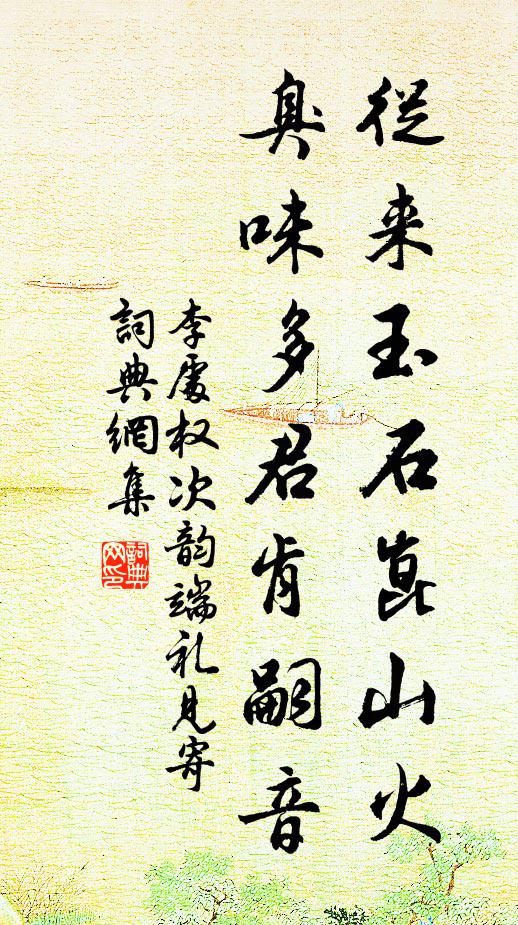 從来玉石崑山火
臭味多君肯嗣音
李處权次韵端礼見寄
詞典網集
詞典网印